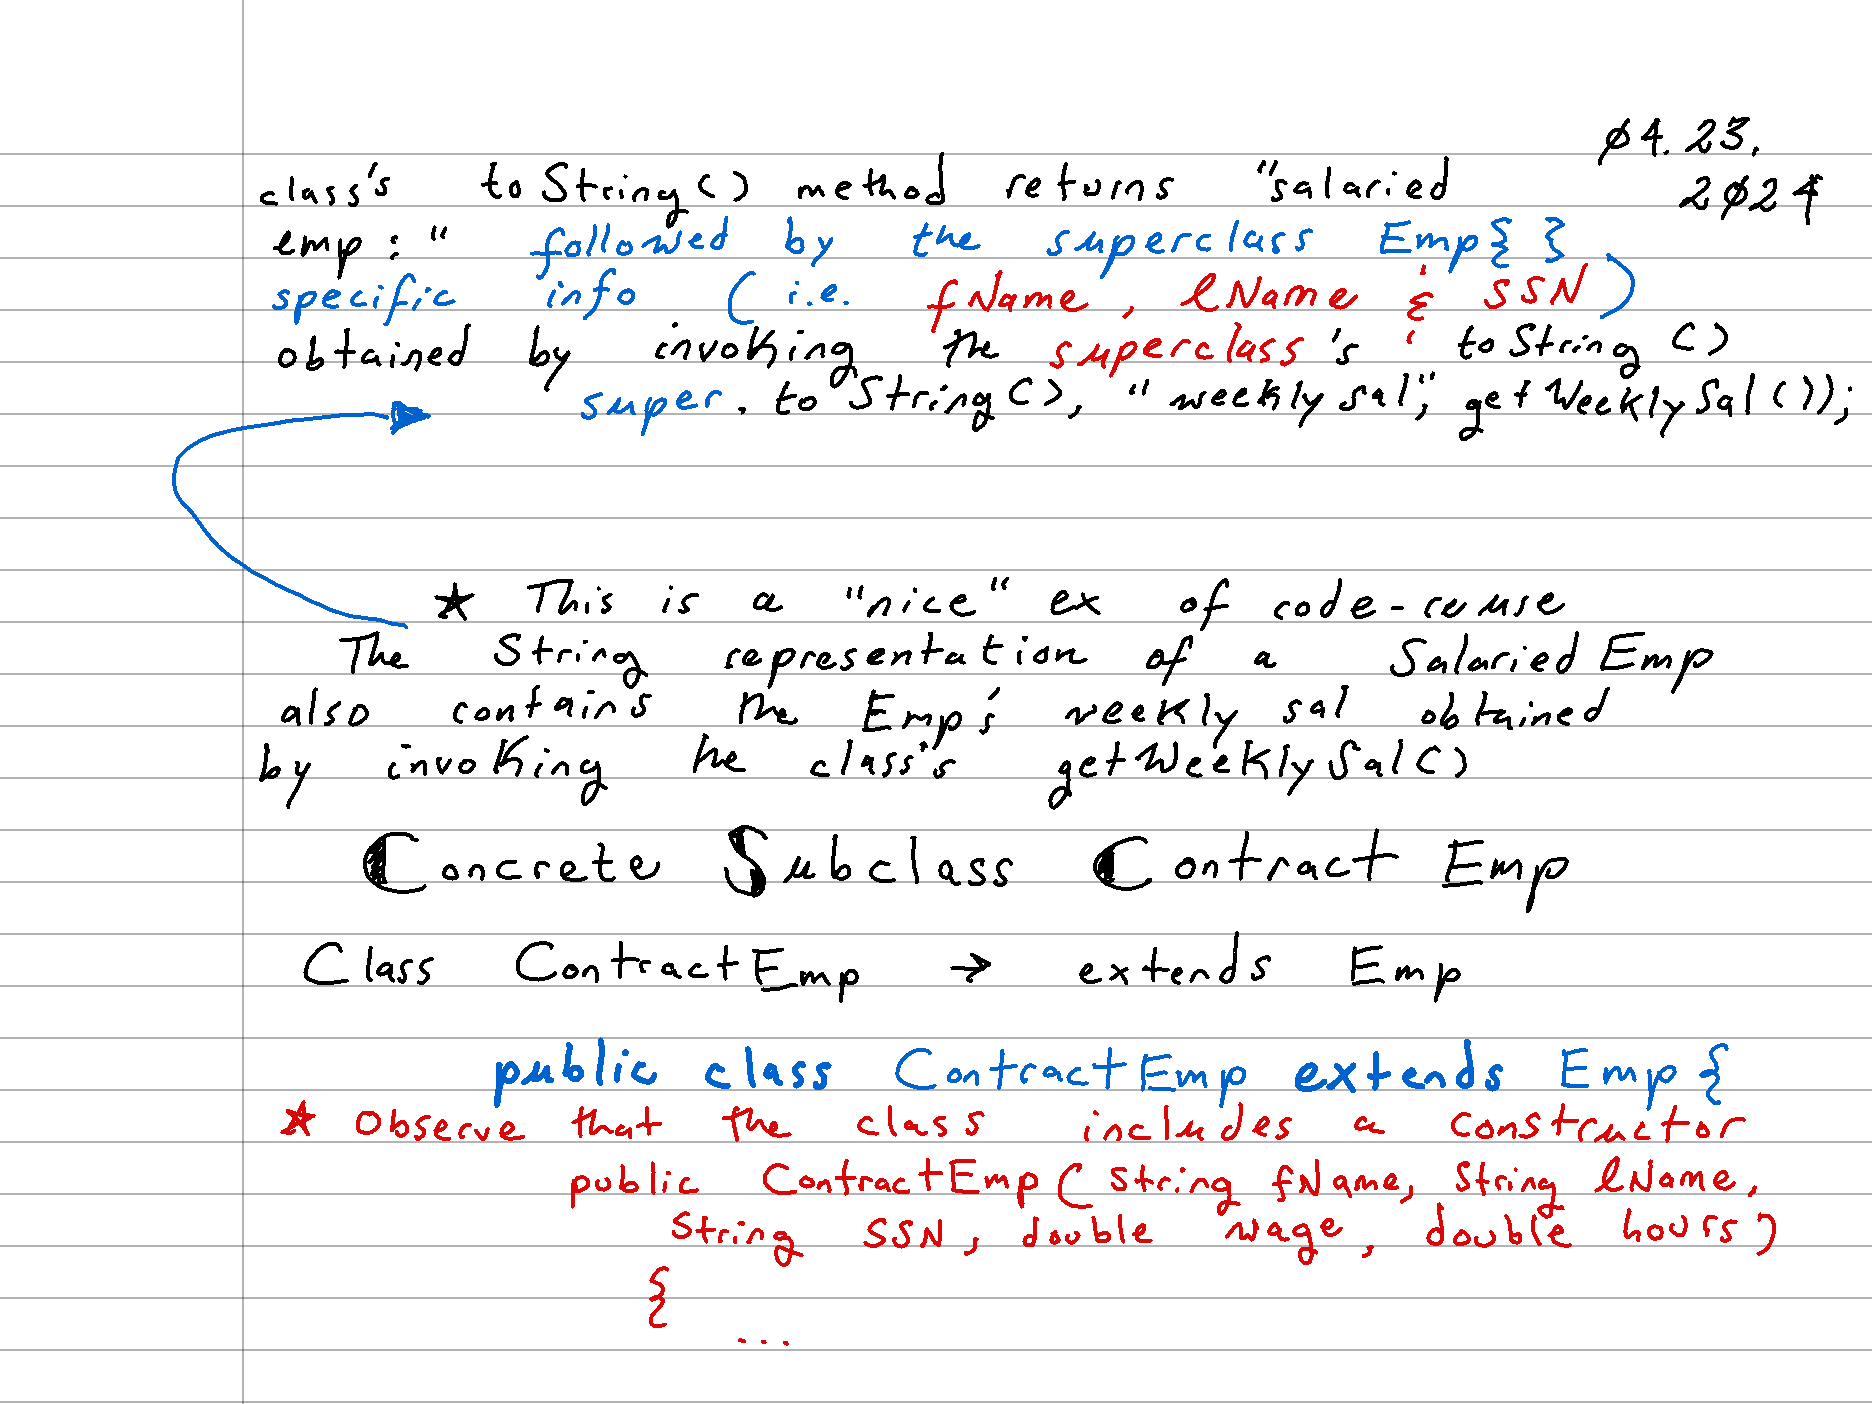 ø4.23.
2ø24
class's toString() method returns "salaried
emp:" followed by the superclass Emp{ }
specific info (i.e. fName, lName & SSN)
obtained by invoking the superclass's toString()
super.toString(), "weekly sal", getWeeklySal());
★ This is a "nice" ex of code-reuse
The String representation of a SalariedEmp
also contains the Emp's weekly sal obtained
by invoking the class's getWeeklySal()
Concrete Subclass Contract Emp
Class ContractEmp → extends Emp
public class ContractEmp extends Emp{
★ Observe that the class includes a constructor
public ContractEmp(String fName, String lName,
String SSN, double wage, double hours)
{
...